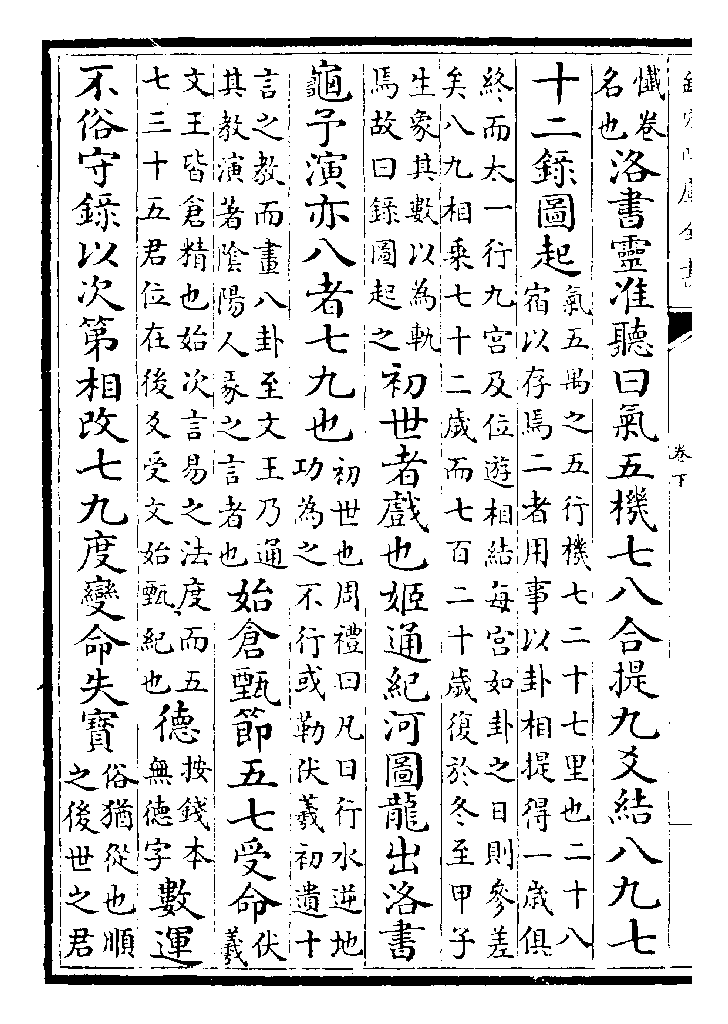 卷下
懺卷
名也
洛書靈准聽曰氣五機七八合提九爻結八九七
十二錄圖起
氣五禺之五行機七二十七里也二十八
宿以存焉二者用事以卦相提得一歲俱
終而太一行九宮及位遊相結每宮如卦之日則參差
矣八九相乗七十二歲而七百二十歲復於冬至甲子
生象其數以為軌
焉故曰錄圖起之
初世者戲也姬通紀河圖龍出洛書
龜予演亦八者七九也
初世也周禮曰凡日行水逆地
功為之不行或勒伏羲初遺十
言之教而畫八卦至文王乃通
其教演著陰陽人彖之言者也
始倉甄節五七受命
伏
羲
文王皆倉精也始次言易之法度而五
七三十五君位在後爻受文始甄紀也
德
按錢本
無德字
數運
不俗守錄以次第相改七九度變命失寶
俗猶從也順
之後世之君